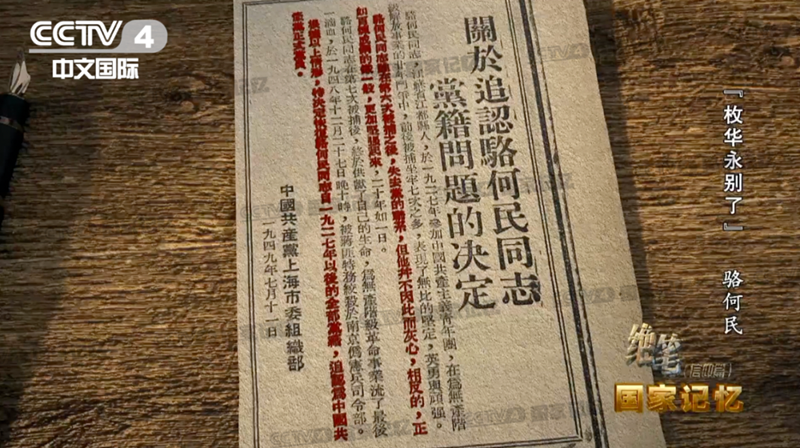 CCTV 4
中文国际
關於追認駱何民同志
黨籍問題的决定
於一九二七年參加中國共產主義靑年團，在爲無產階
鬥爭中，前後被捕坐牢七次之多，表現了無比的堅定，英勇與頑强。
駱何民同志雖在第六次被捕之後，失去黨的聯系，但他并不因此而灰心，相反的，正
更加堅强起來，二十年如一日。
駱何民同志在第七次被捕後，終於供獻了自己的生命，爲無產階級革命事業流了最後
一滴血，於一九四八年十二月二十七日晚十時，被蔣匪特務絞殺於南京僞憲兵司令部。
駱何民同志自一九二七年以後的全部黨籍，追認爲中國共
產黨正式黨員。
中國共產黨上海市委組織部
一九四九年七月十一日
『枚华永别了』 骆何民
绝笔
（信仰篇）
国家记忆